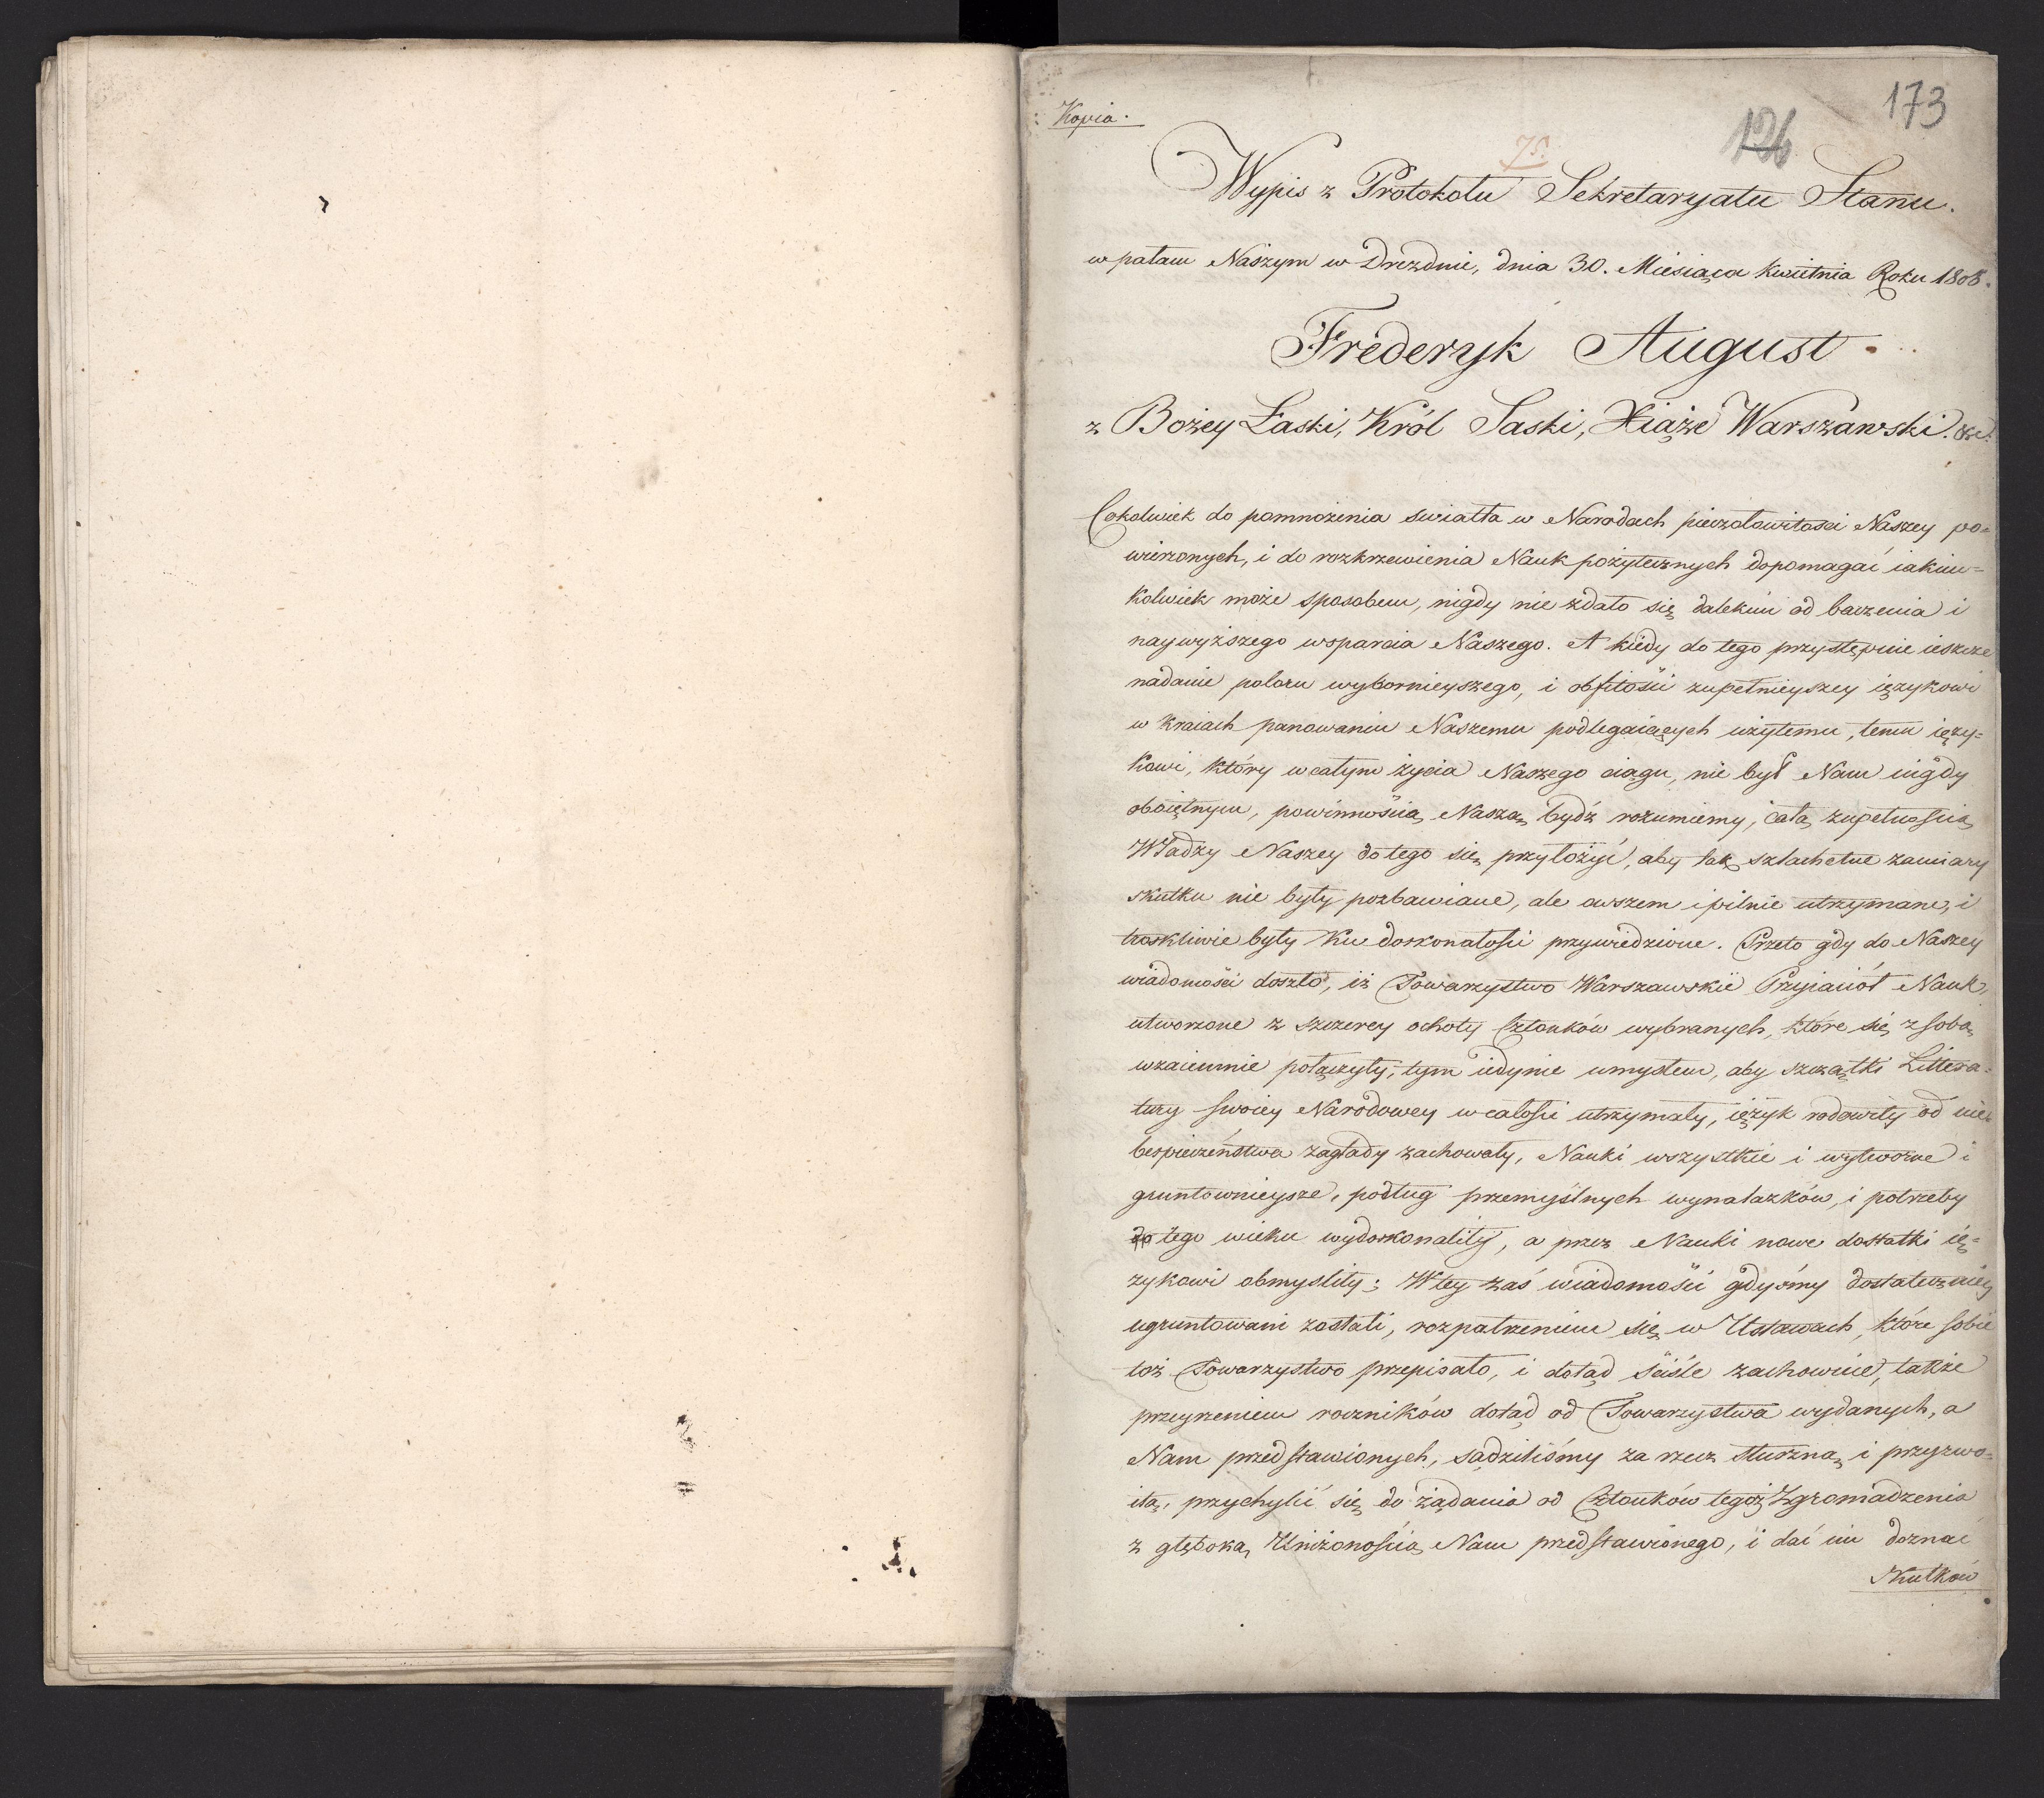 173
Kopia.
126
75.
Wypis z Protokołu Sekretaryatu Stanu.
w pałacu Naszym w Dreznie, dnia 30. Miesiąca Kwietnia Roku 1808.
Frederyk August
z Bożey Łaski, Król Saski, Xiąże Warszawski. &c.
Cokolwiek do pomnożenia swiatła w Narodach pieczołowitosci Naszey po=
wierzonych, i do rozkrzewienia Nauk pożytecznych dopomagać iakim=
kolwiek może sposobem, nigdy nie zdało się dalekim od baczenia i
naywyższego wsparcia Naszego. A kiedy do tego przystępuie ieszcze
nadanie poloru wybornieyszego, i obfitości zupełnieyszey ięzykowi
w kraiach panowaniu Naszemu podlegaiących użytemu, temu ięzy=
kowi, który w całym życia Naszego ciągu, nie był Nam nigdy
oboiętnym, powinnością Naszą bydź rozumiemy, całą zupełnością
Władzy Naszey do tego się przyłożyć, aby tak szlachetne zamiary
skutku nie były pozbawiane, ale owszem i pilnie utrzymane, i
troskliwie były ku doskonałości przywiedzione. Przeto gdy do Naszey
wiadomości doszło, iż Towarzystwo Warszawskie Przyiaciół Nauk,
utworzone z szczerey ochoty Członków wybranych, które się z sobą
wzaiemnie połączyły, tym iedynie umysłem, aby szczątki Littera=
tury swoiey Narodowey w całości utrzymały, ięzyk rodowity od nie=
bespieczeństwa zagłady zachowały, Nauki wszystkie i wytworne i
gruntownieysze, podług przemyślnych wynalazków, i potrzeby
tego wieku wydoskonaliły, a przez Nauki nowe dostatki ię=
zykowi obmyśliły; W tey zaś wiadomości gdyśmy dostateczniey
ugruntowani zostali, rozpatrzeniem się w Ustawach, które sobie
toż Towarzystwo przepisało, i dotąd ściśle zachowuie, także
przeyrzeniem roczników dotąd od Towarzystwa wydanych, a
Nam przedstawionych, sądziliśmy za rzecz słuszną, i przyzwo=
itą, przychylić się do żądania od Członków tegoż Zgromadzenia
z głęboką Uniżonością Nam przedstawionego, i dać im doznać
Skutków